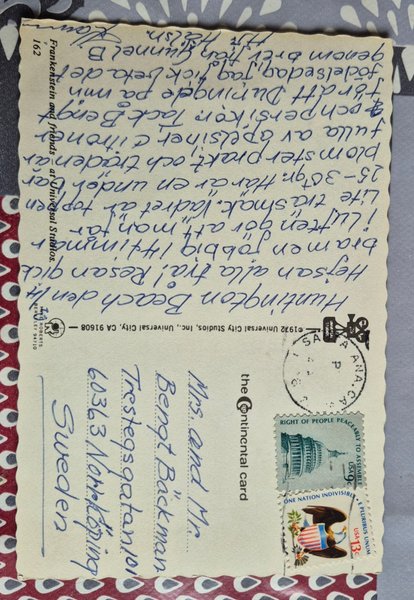 Huntington Beach den
Hejsan alla Resan gick
bra men jobbig 14 timmar
i luften gör att man tar
lite träsmak. Vädret är toppen
25-30 gr. Här är en
blomsterprakt och träden är
fulla av apelsiner citroner
och persikor. Tack Bengt
för ditt på min
födelsedag, jag fick reda det
genom brev från Gunnel B
Frankenstein and friends at Universal Studios.
162
©1932 Universal City Studios, Inc., Universal City, CA 91608
the Continental card
Mrs. and Mr.
Bengt Bäckman
Trestegsgatan 101
60363 Norrköping
Sweden
SANTA ANA, CA
RIGHT OF PEOPLE PEACEABLY TO ASSEMBLE
USA 9c
ONE NATION INDIVISIBLE
E PLURIBUS UNUM
USA 13c